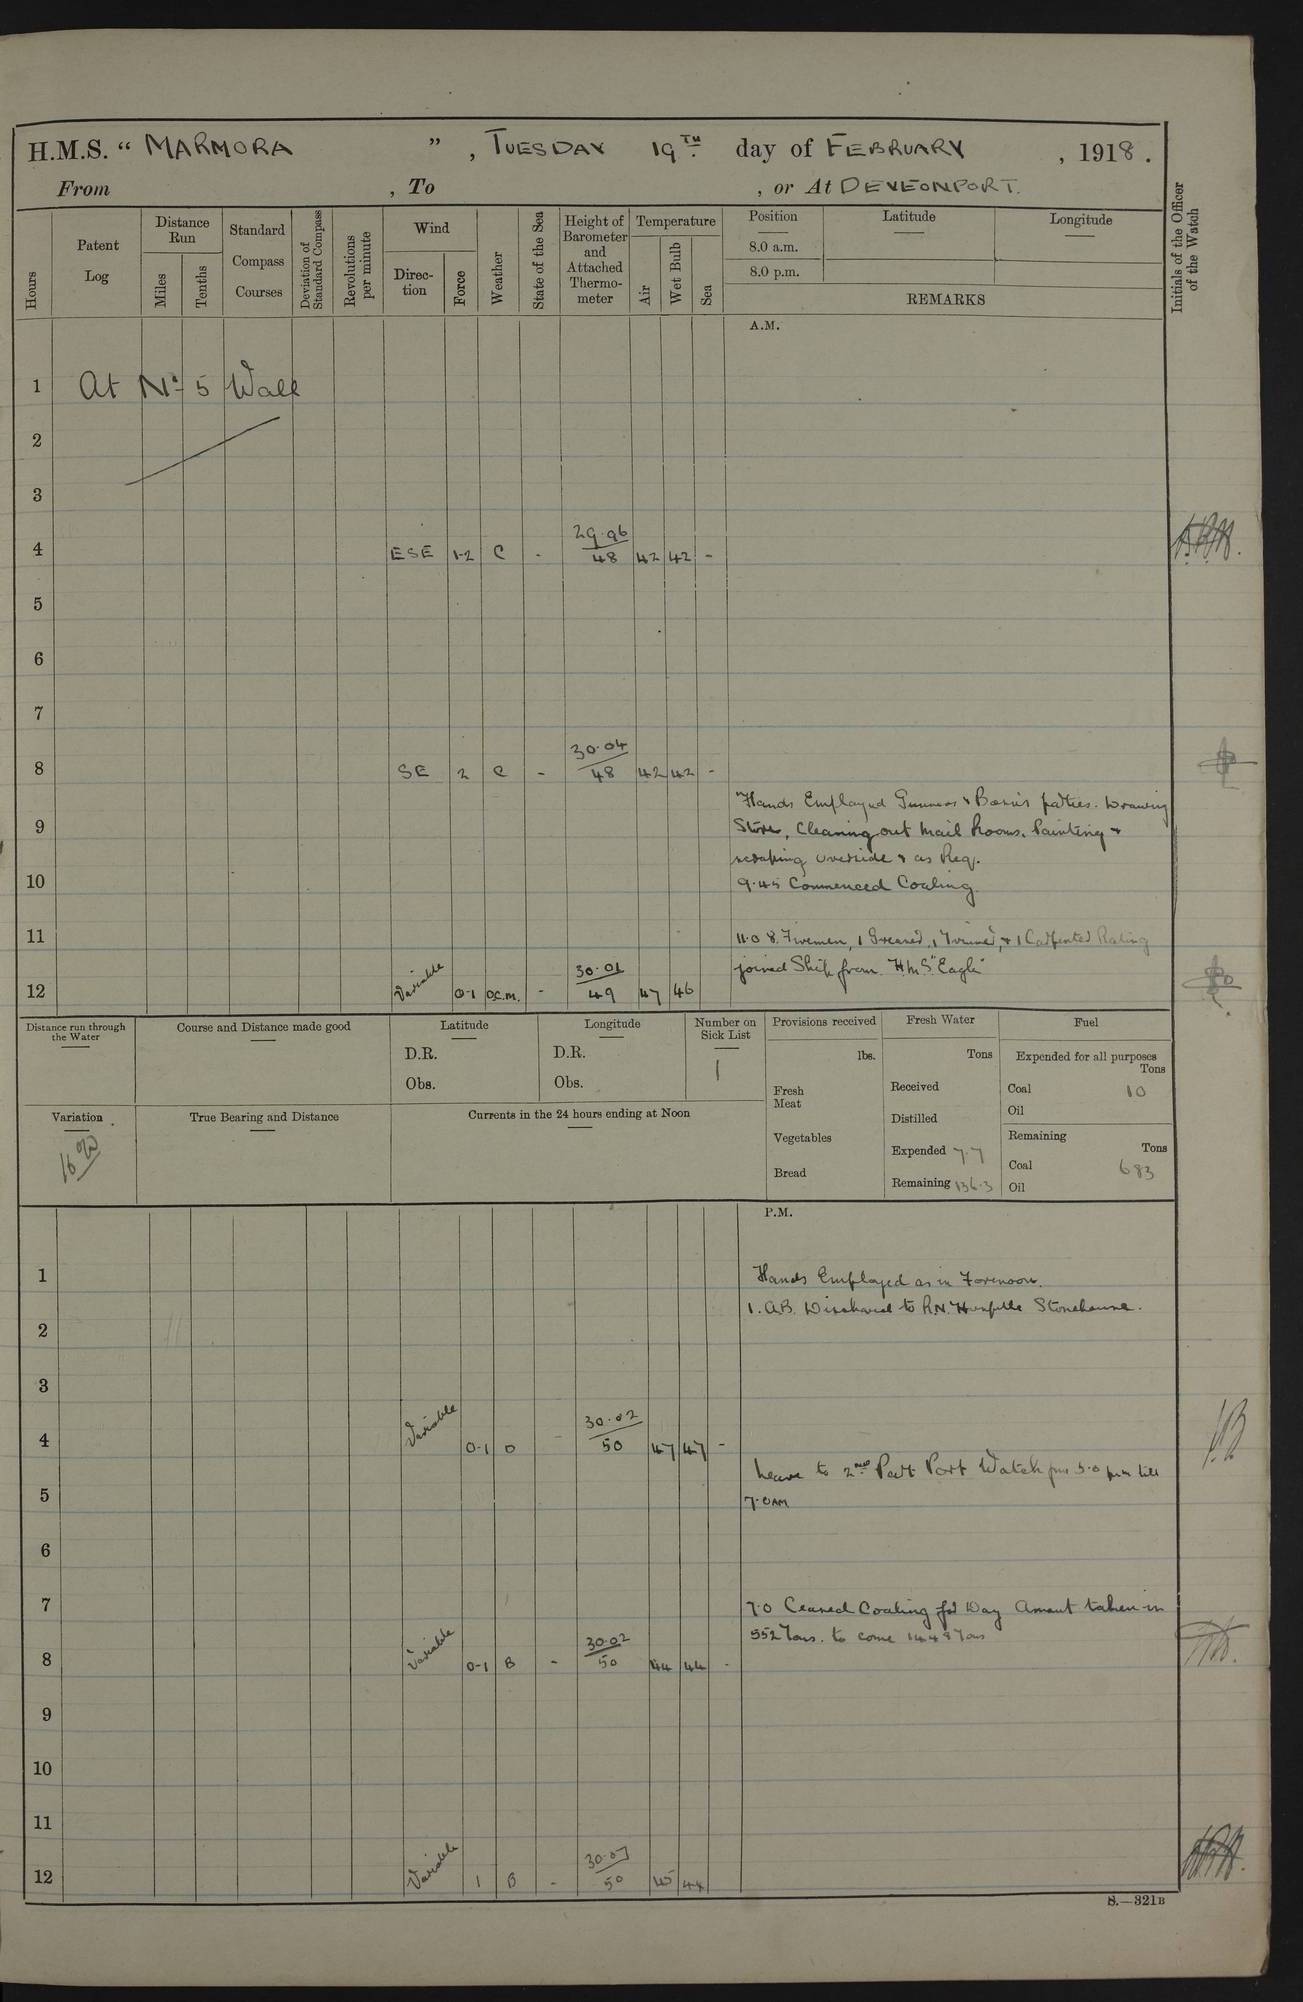 H.M.S. “ MARMORA ” , TUESDAY 19TH day of FEBRUARY , 1918 .
From , To , or At DEVEONPORT.
Hours
Patent Log
Distance Run
Miles
Tenths
Standard Compass Courses
Deviation of Standard Compass
Revolutions per minute
Wind
Direction
Force
Weather
State of the Sea
Height of Barometer and Attached Thermometer
Temperature
Air
Wet Bulb
Sea
Position
8.0 a.m.
8.0 p.m.
Latitude
Longitude
REMARKS
Initials of the Officer of the Watch
A.M.
1 At No 5 Wall
2
3
4 ESE 1-2 C - 29.96 / 48 42 42 -
5
6
7
8 SE 2 C - 30.04 / 48 42 42 -
Hands Employed Gunners & Bosn's parties. Drawing
9 Stores, Cleaning out Mail Rooms. Painting &
scraping overside & as Req.
10 9.45 Commenced Coaling.
11 11.0 8. Firemen, 1 Greaser, 1 Trimmer, & 1 Carpenter Rating
joined Ship from H.M.S. "Eagle"
12 Variable 0-1 o.c.m. - 30.01 / 49 47 46
Distance run through the Water
Course and Distance made good
Latitude
D.R.
Obs.
Longitude
D.R.
Obs.
Number on Sick List
1
Provisions received
lbs.
Fresh Meat
Vegetables
Bread
Fresh Water
Tons
Received
Distilled
Expended 7.7
Remaining 136.3
Fuel
Expended for all purposes
Tons
Coal 10
Oil
Remaining
Tons
Coal 683
Oil
Variation
True Bearing and Distance
Currents in the 24 hours ending at Noon
P.M.
1 Hands Employed as in Forenoon.
1. A.B. to R.N. Stonehouse.
2
3
4 Variable 0-1 o - 30.02 / 50 47 47 -
Leave to 2nd Part Port Watch from 5.0 pm till
5 7.0 AM
6
7 7.0 Ceased Coaling for Day Amount taken in
552 Tons. to come 1448 Tons
8 Variable 0-1 B - 30.02 / 50 44 44 -
9
10
11
12 Variable 1 B - 30.07 / 50 45 44
S.—321B